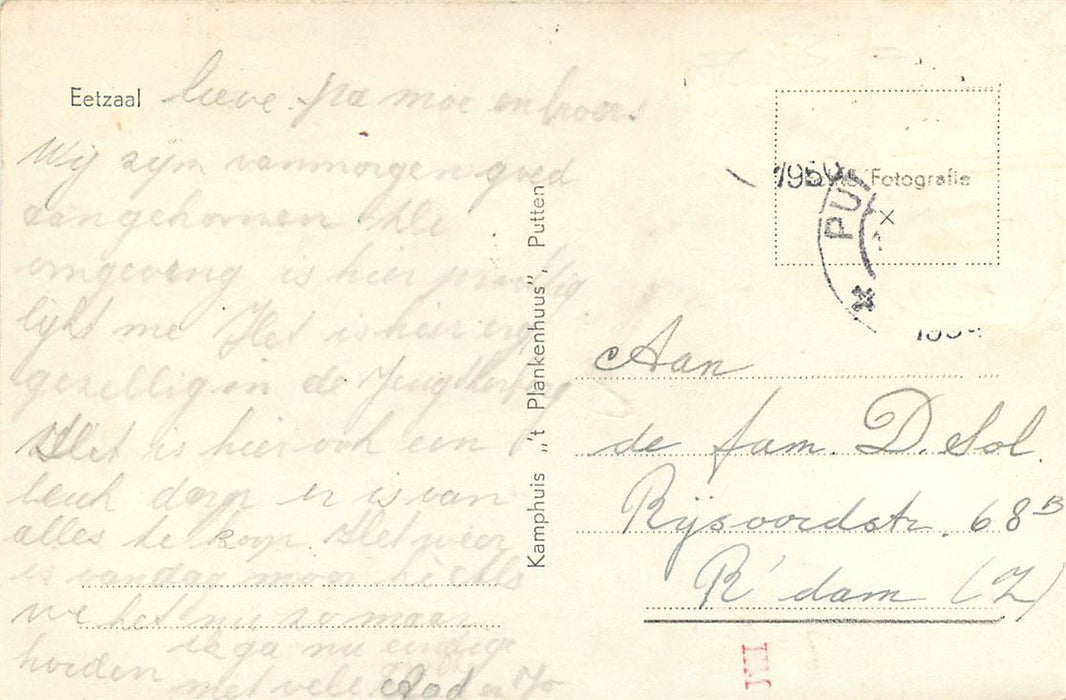 Eetzaal
lieve pa moe en broer.
Wij zijn vanmorgen goed
aangekomen de
omgeving is hier prachtig
lijkt me Het is hier erg
gezellig in de Jeugdherberg
Het is hier ook een
leuk dorp er is van
alles te koop Het weer
is vandaag mooi
we het nu zo maar
houden ik ga nu eindige
met vele
Kamphuis „'t Plankenhuus”, Putten
195
Fotografie
PUT
Aan
de fam. D. Sol.
Rijsoordstr. 68B
R'dam (Z)
III